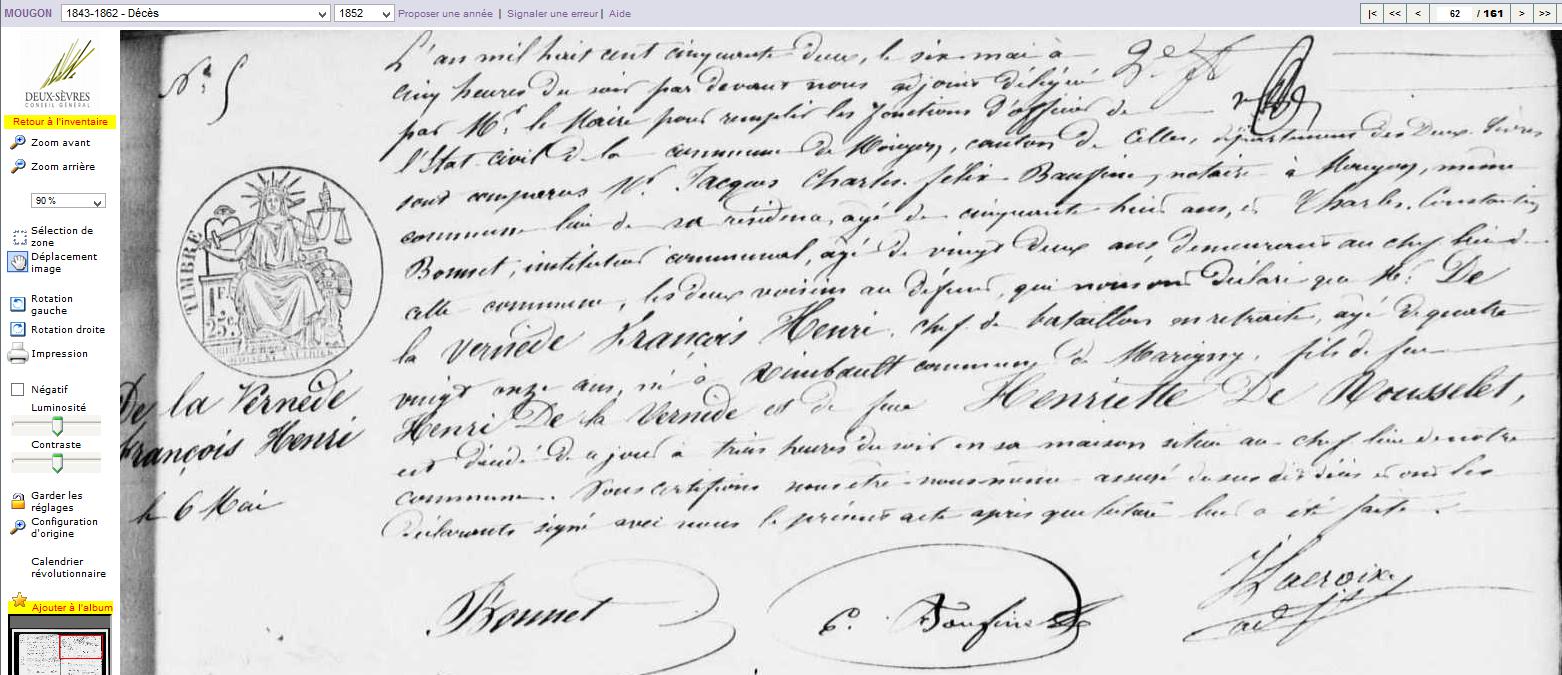 MOUGON 1843-1862 - Décès 1852 Proposer une année | Signaler une erreur | Aide |< << < 62 / 161 > >>
DEUX-SÈVRES
CONSEIL GÉNÉRAL
Retour à l'inventaire
Zoom avant
Zoom arrière
90 %
Sélection de
zone
Déplacement
image
Rotation
gauche
Rotation droite
Impression
Négatif
Luminosité
Contraste
Garder les
réglages
Configuration
d'origine
Calendrier
révolutionnaire
Ajouter à l'album
N° 5
TIMBRE
1F
25c
De la Vernède
François Henri
le 6 Mai
L'an mil huit cent cinquante deux, le six mai à
cinq heures du soir par devant nous adjoint délégué
par Mr le Maire pour remplir les fonctions d'officier de
l'Etat civil de la commune de Mougon, canton de Celles, département des Deux-Sèvres
sont comparus Mr Jacques Charles félix Baufine, notaire à Mougon, même
commune lieu de sa résidence, agé de cinquante huit ans, et Charles Constantin
Bonnet, instituteur communal, agé de vingt deux ans, demeurant au chef lieu de
cette commune, les deux voisins au défunt, qui nous ont déclaré que Mr De
la Vernède François Henri, chef de bataillon en retraite, agé de quatre
vingt onze ans, né à Rimbault commune de Marigny, fils de feu
Henri De la Vernède et de feue Henriette De Rousselet,
est décédé ce jour à trois heures du soir en sa maison située au chef lieu de notre
commune. Nous certifions nous être nous-même assuré du sus dit décès et ont les
Déclarants signé avec nous le présent acte après que lecture leur a été faite.
Bonnet
C. Baufine
Lacroix
adjt